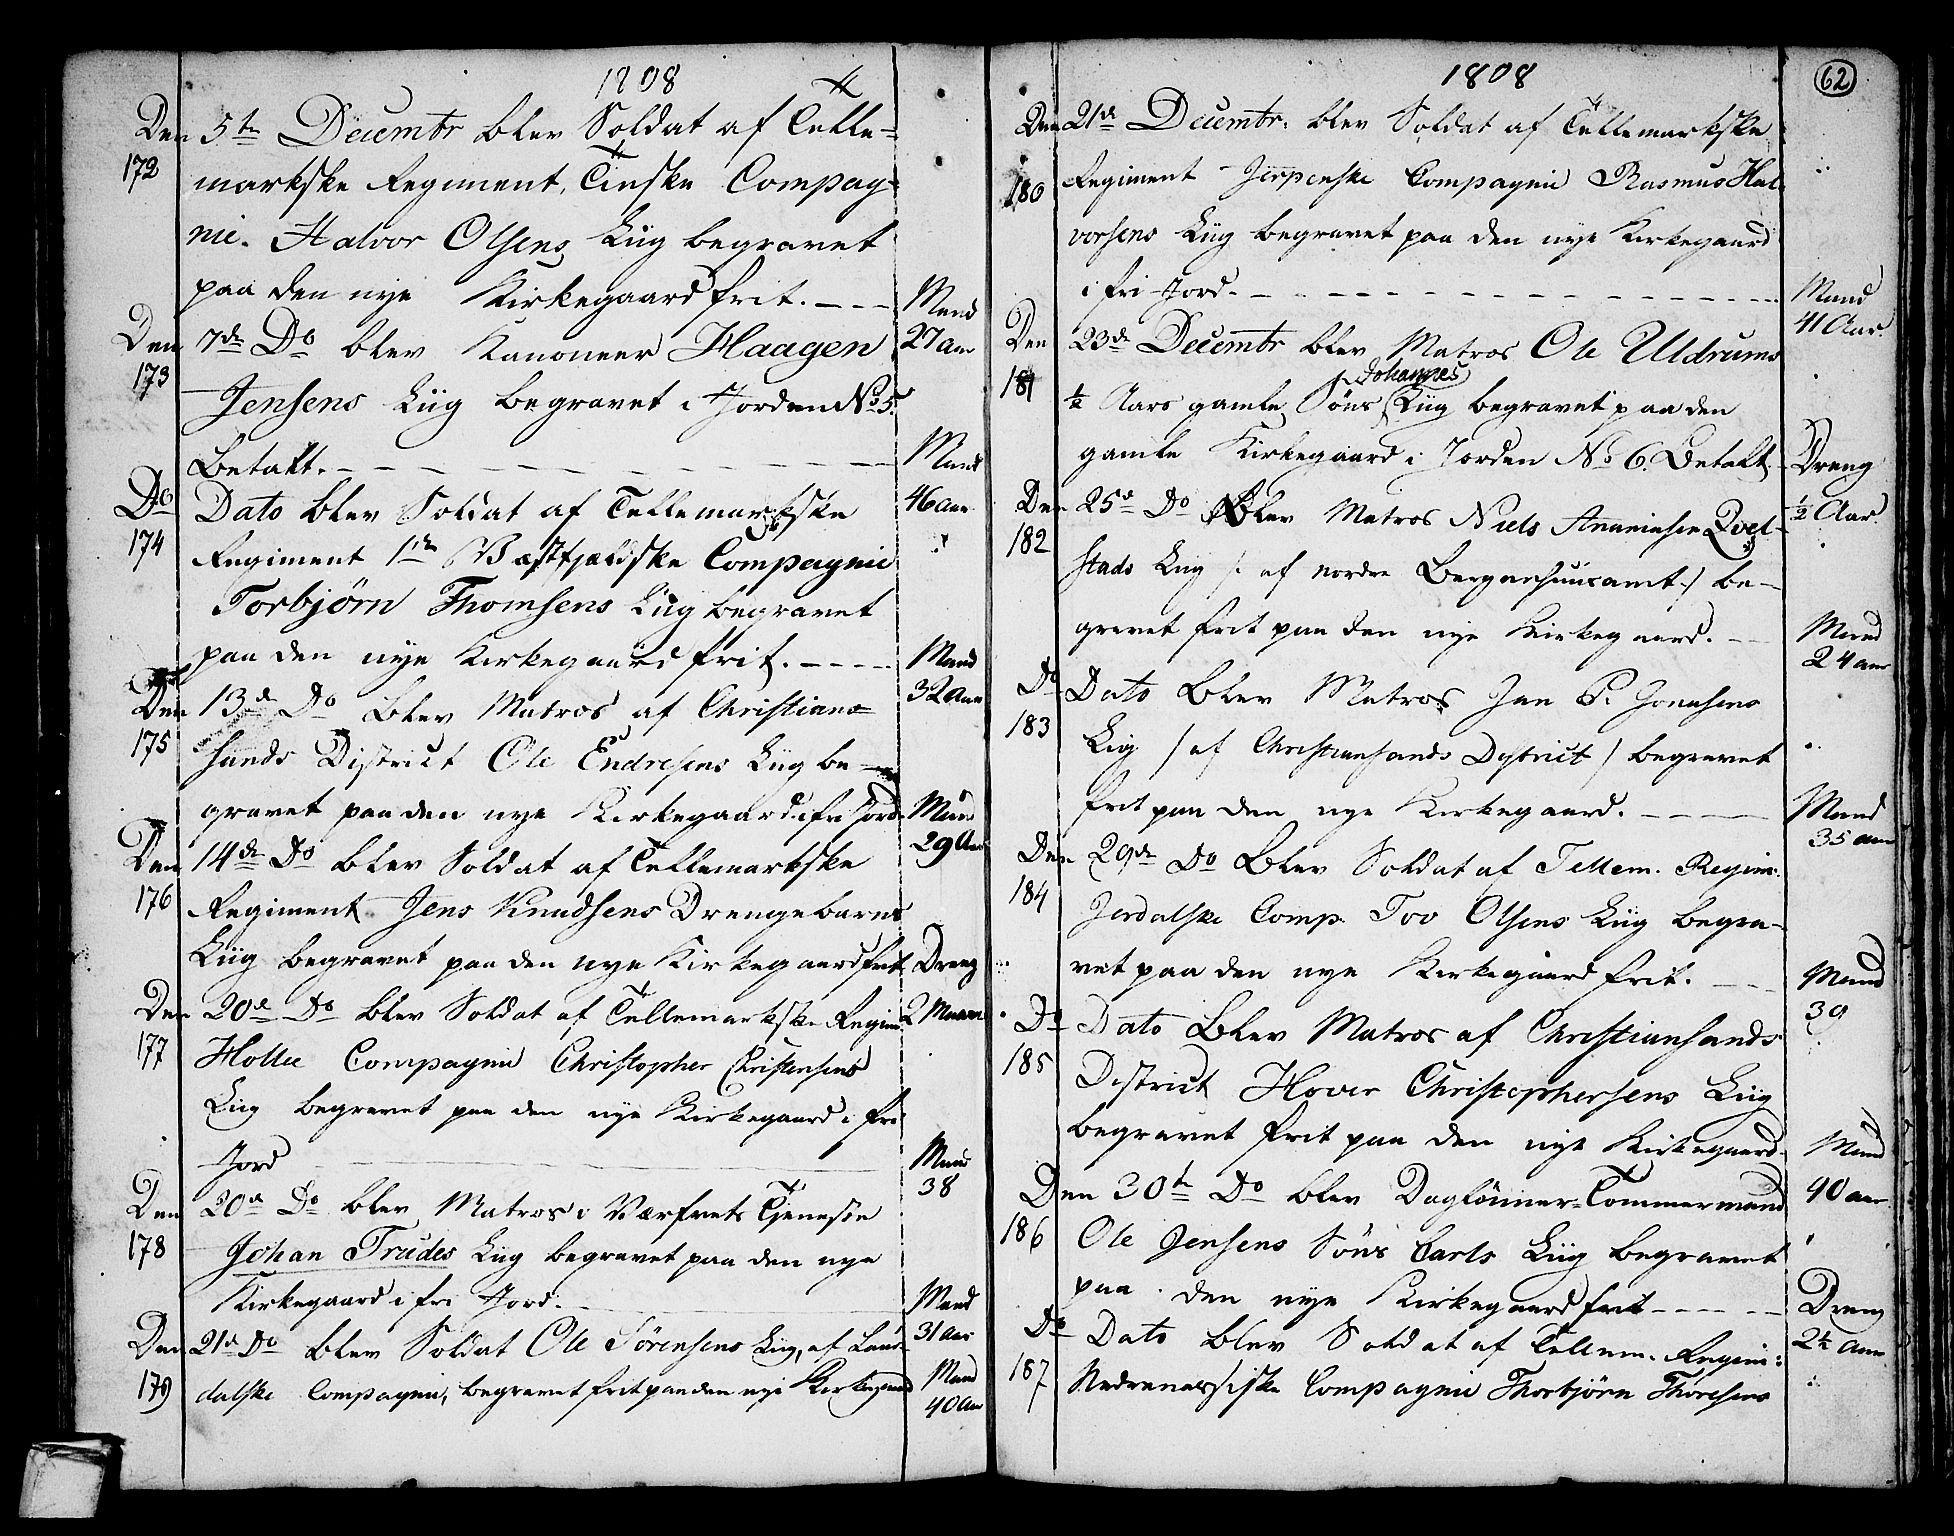 1808
Den 5te Decembr blev Soldat af Telle=
172 markske Regiment, Tinske Compag=
nie. Halvor Olsens Liig begravet
paa den nye Kirkegaard frit. Mand
27 aar
Den 7de Do blev Kanoneer Haagen
173 Jensens Liig begravet i Jorden No 5.
Betalt. Mand
46 aar
Do Dato blev Soldat af Tellemarkske
174 Regiment 1ste Væstfjældske Compagnie
Torbjörn Thomsens Liig begravet
paa den nye Kirkegaard frit. Mand
32 aar
Den 13de Do blev Matros af Christian=
175 sands District Ole Endresens Liig be=
gravet paa den nye Kirkegaard i fri Jord Mand
29 Aar
Den 14de Do blev Soldat af Tellemarkske
176 Regiment Jens Knudsens Drengebarns
Liig begravet paa den nye Kirkegaard frit Dreng
2 Maan
Den 20de Do blev Soldat af Tellemarkske Regim
177 Compagnie Christopher Christensens
Liig begravet paa den nye Kirkegaard i fri
Jord Mand
38
Den 20de Do blev Matros i Værfvets Tjeneste
178 Johan Trudes Liig begravet paa den nye
Kirkegaard i fri Jord. Mand
31 aar
Den 21de Do blev Soldat Ole Sörensens Liig, af Laur=
179 dalske Compagnie, begravet frit paa den nye Kirkegaard Mand
40 aar
1808
62
Den 21de Decembr. blev Soldat af Tellemarkske
180 Regiment Jerpenske Compagnie Rasmus Hal=
vorsens Liig begravet paa den nye Kirkegaard
i fri Jord. Mand
41 Aar.
Den 23de Decembr blev Matros Ole Uldrums
Johannes
181 ½ Aars gamle Söns Liig begravet paa den
gamle Kirkegaard i Jorden No 6. Betalt. Dreng
½ Aar.
Den 25de Do Blev Matros Niels Ananiasen Qvel=
182 stads Liig /: af nordre Bergenhuusamt :/ be=
gravet frit paa den nye Kirkegaard. Mand
24 aar
Do Dato Blev Matros Jan P. Jonasens
183 Liig / af Christiansands District / begravet
frit paa den nye Kirkegaard. Mand
35 aar
Den 29de Do Blev Soldat af Tellem. Regim:
184 Comp. Tov Olsens Liig begra=
vet paa den nye Kirkegaard frit. Mand
39
Do Dato Blev Matros af Christiansands
185 District Hover Christophersens Liig
begravet frit paa den nye Kirkegaard. Mand
40 aar
Den 30te Do blev Daglönner=Tömmermand
186 Ole Jensens Söns Carls Liig begravet
paa den nye Kirkegaard frit Dreng
2½ Aar
Do Dato blev Soldat af Tellem. Regim:
187 Nedrenæssiske Compagnie Thorbjörn Thoresens